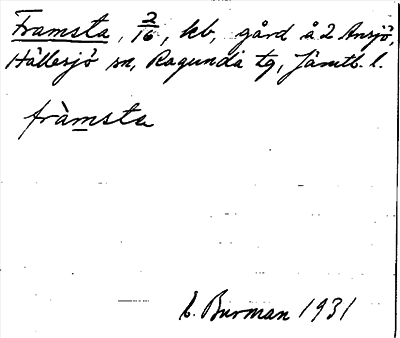 Framsta, 2/16, kb, gård å 2 Ansjö,
Hällesjö sn, Ragunda tg, Jämtl. l.
fràmsta
E. Burman 1931